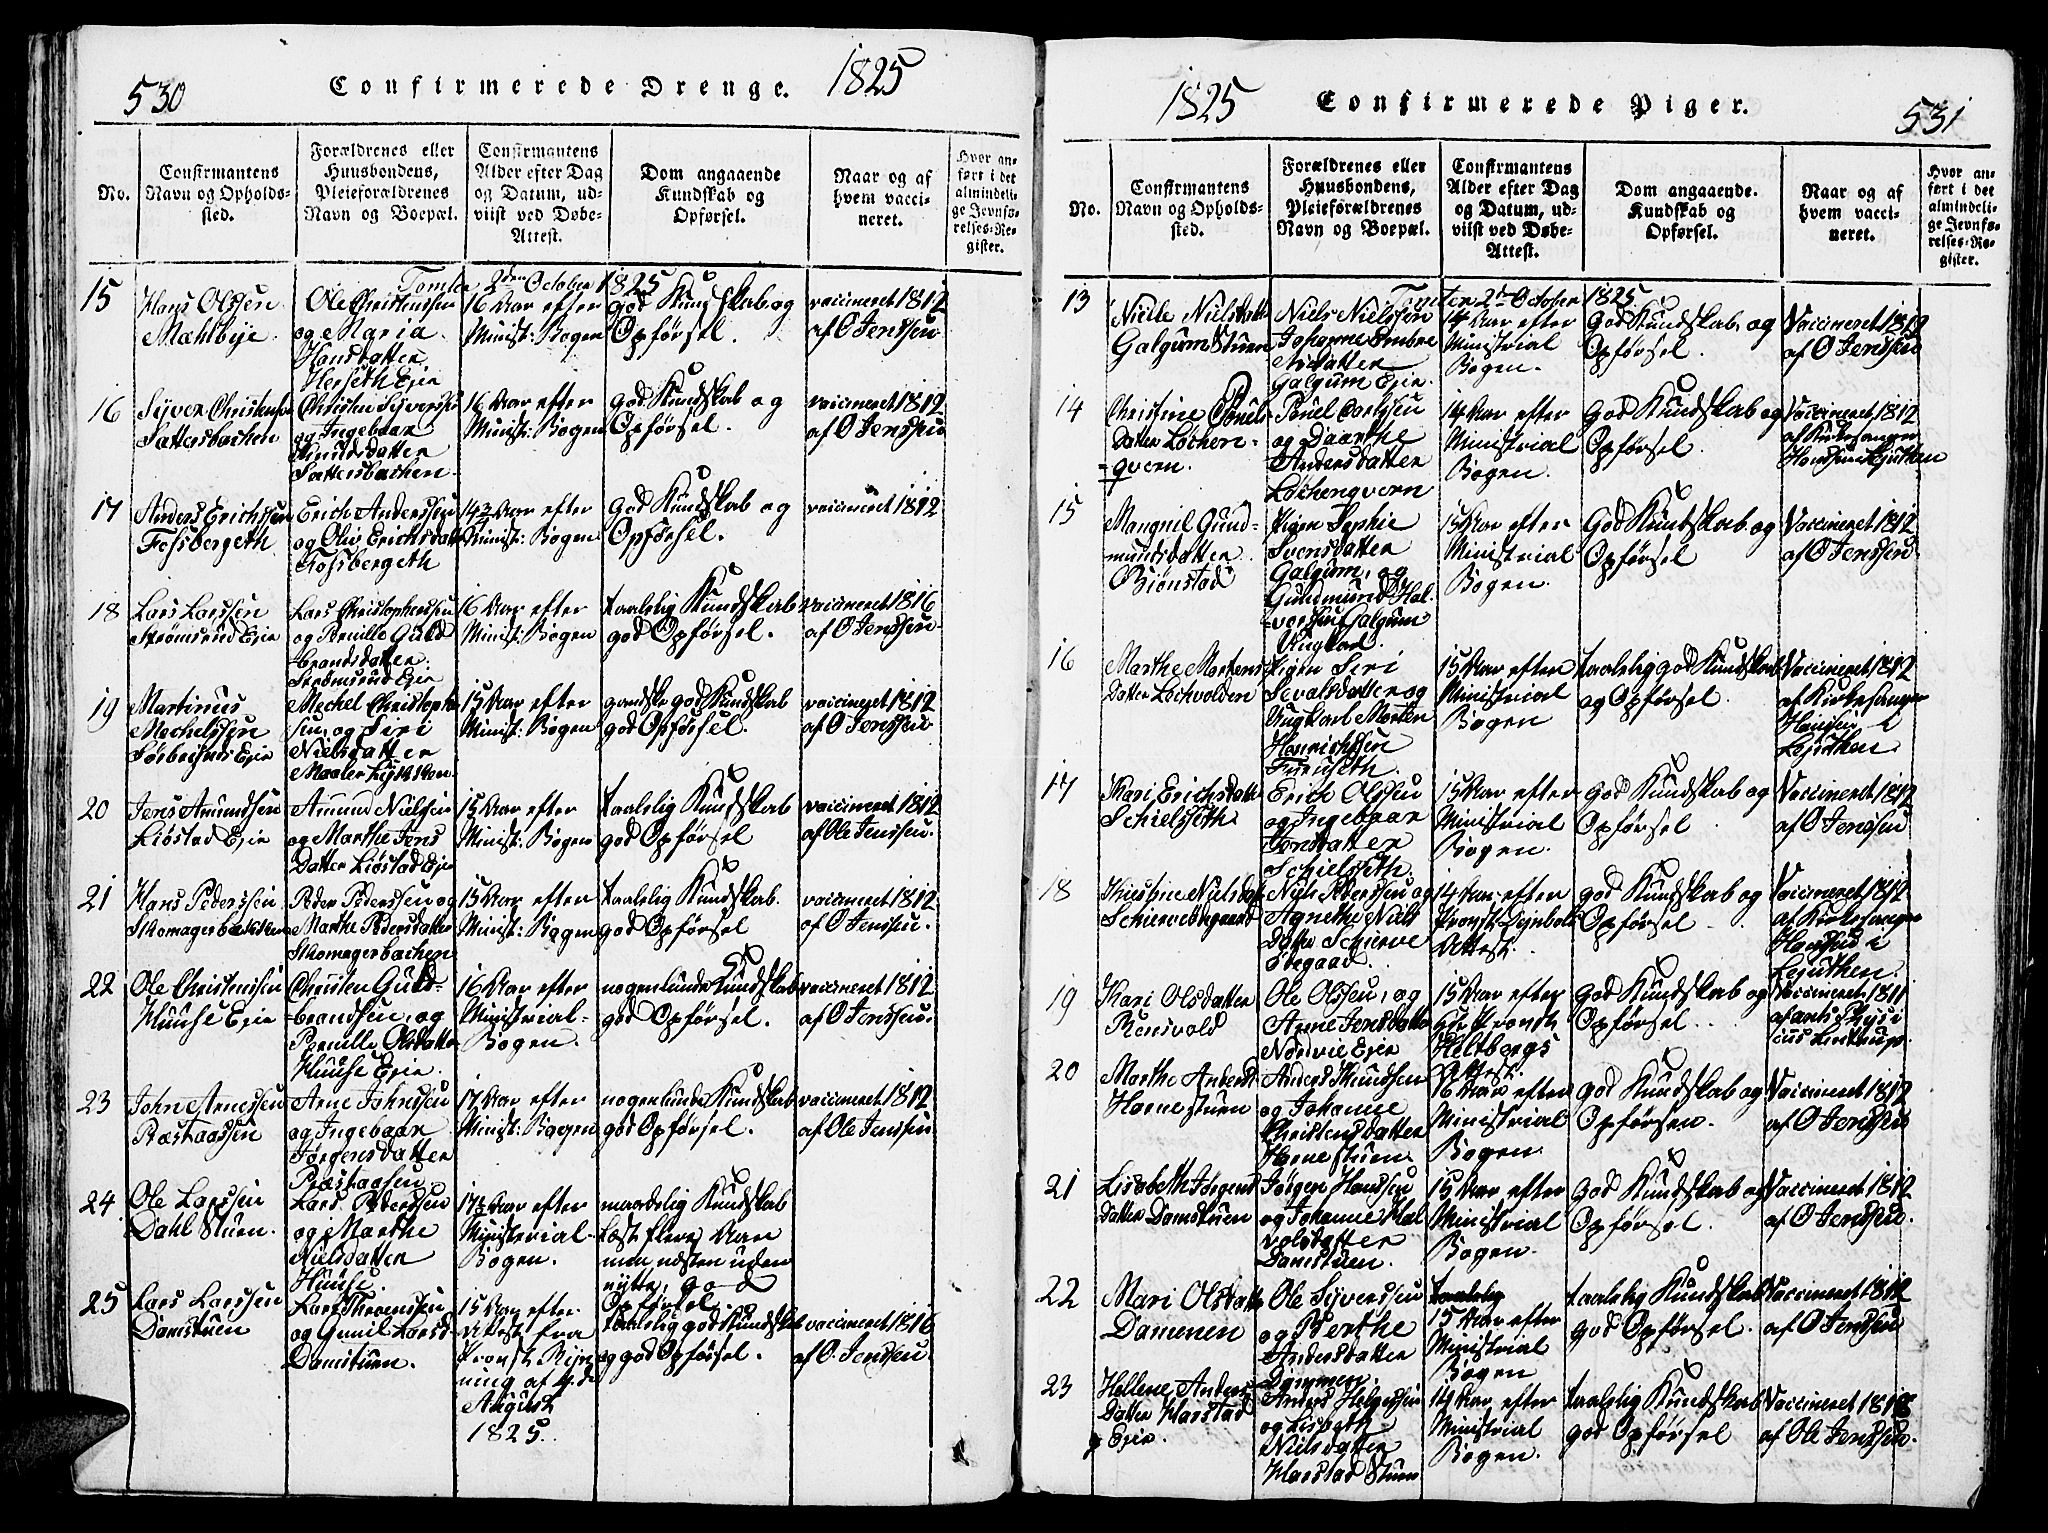 530
Confirmerede Drenge.
1825
No.
Confirmantens
Navn og Opholds-
sted.
Forældrenes eller
Huusbondens,
Pleieforældrenes
Navn og Boepæl.
Confirmantens
Alder efter Dag
og Datum, ud-
viist ved Døbe-
Attest.
Dom angaaende
Kundskab og
Opførsel.
Naar og af
hvem vacci-
neret.
Hvor an-
ført i det
almindeli-
ge Jevnfø-
relses-Re-
gister.
2den October 1825
15
Hans Olssen
Mæhlbye.
Ole Christenssen
og Maria
Hansdatter
Herseth Eje
16 Aar efter
Minist: Bogen
god Kundskab og
Opførsel.
vaccineret 1812
af O Jenssen
16
Syver Christensen
Sattersbachen
Christen Syverss
og Ingebaar
Knudsdatter
Sattersbachen.
16 Aar efter
Minist: Bogen
god Kundskab og
Opførsel.
vaccineret 1812
af O Jenssen
17
Anders Erichssen
Fossbergeth
Erich Anderssen
og Oliv Erichsdatt
Fossbergeth
Aar efter
Minist: Bogen
god Kundskab og
Opførsel.
vaccineret 1812
18
Lars Larssen
Strømsrud Eje
Lars Christophersen
og Pernille Guld
-brandsdatter.
Strømsrud Eje
16 Aar efter
Minist: Bogen
taalelig Kundskab
god Opførsel.
vaccineret 1816
af O Jenssen
19
Martinus
Mechelssen
Eje
Mechel Christoph
sen og Siri
Nielsdatter
15 Aar efter
Minist: Bogen
ganske god Kundskab
god Opførsel.
vaccineret 1812
af O Jenssen
20
Jens Amundsen
Liøstad Eje
Amund Nielsen
og Marthe Jens
Datter Liøstad Eje
15 Aar efter
Minist: Bogen
taalelig Kundskab
god Opførsel
vaccineret 1812
af Ole Jenssen.
21
Hans Pederssen
Skomagerbakken
Peder Pederssen og
Marthe Pedersdatter
Skomagerbachen
15 Aar efter
Minist: Bogen
taalelig Kundskab.
god Opførsel
vaccineret 1812
af O Jenssen.
22
Ole Christenssen
Huuse Eje
Christen Guld-
-brandsen, og
Pernille Olsdatter
Huuse Eje.
16 Aar efter
Ministrial-
Bogen.
nogenlunde Kundskab
god Opførsel.
vaccineret 1812
af O Jenssen.
23
John Arnessen
Præstaassen
Arne Johnssen
og Ingebaar
Jørgensdatter
Præstaasen
17 Aar efter
Minist: Bogen
nogenlunde Kundskab
god Opførsel.
vaccineret 1812
af Ole Jenssen
24
Ole Larssen
Dahl Stuen.
Lars Pederssen
og Marthe
Nielsdatter
Huuse.
Aar efter
Ministerial-
Bogen.
maadelig Kundskab
Læst flere Aar
men næsten uden
nytte, god
Opførsel
25
Lars Larssen
Damstuen
og Gunil Larsd
Damstuen.
15 Aar efter
Attest fra
Provst Ryn-
ning af 4de
August
1825.
taalelig god Kundskab
og god Opførsel.
vaccineret 1816
af O. Jenssen.
1825
Confirmerede Piger.
531
No.
Confirmantens
Navn og Opholds-
sted.
Forældrenes eller
Huusbondens,
Pleieforældrenes
Navn og Boepæl.
Confirmantens
Alder efter Dag
og Datum, ud-
viist ved Døbe-
Attest.
Dom angaaende
Kundskab og
Opførsel.
Naar og af
hvem vacci-
neret.
Hvor an-
ført i det
almindeli-
ge Jevnfø-
relses-Re-
gister.
Tomter 2den October 1825
13
Nielsdatt
Galgum Stuen
Niels Nielssen
Johanne
Galgum Eje.
14 Aar efter
Ministrial
Bogen.
God Kundskab, og
Opførsel.
Vaccineret 1812
af O Jenssen
14
Christine Pouls-
Datter Løchen-
-qvern.
Poul Carlssen
og Daarthe
Andersdatter
Løchenqvern
14 Aar efter
Ministrial
Bogen.
God Kundskab og
Opførsel.
Vaccineret 1812
af Kirkesanger
Hansen i Lejuthen
15
Mangnil Gund-
mundsdatter
Biønstad
Pigen Sophie
Svensdatter
Galgum, og
Gundmund Hal-
-vorssen Galgum
Ungkarl.
15 Aar efter
Ministrial
Bogen.
God Kundskab og
Opførsel
Vaccineret 1812
af O Jenssen.
16
Marthe Mortens
Datter Lochvolden
Pigen Siri
Sevalsdatter og
Ungkarl Morten
Henrichssen
Furuseth.
15 Aar efter
Ministrial
Bogen
taalelig god Kundskab
og Opførsel.
Vaccineret 1812
af Kirkesanger
Hansen i
Lejuthen
17
Kari Erichsdatt
Schielseth.
Erich Olssen
og Ingebaar
Jonsdatter
Schielseth.
15 Aar efter
Ministrial
Bogen.
God Kundskab og
Opførsel
Vaccineret 1812
af O Jenssen
18
Nielsdat
Niels Pederssen og
Agnethe Niels
Datter Schierve
Ødegaard.
14 Aar efter
Provst
Attest.
god Kundskab og
Opførsel.
Vaccineret 1812
af Kirkesanger
i
Lejuthen.
19
Kari Olsdatter
Rensvold
Ole Olssen, og
Anne Jensdatter
Eje
15 Aar efter
Provst
Heltbergs
Attest.
God Kundskab og
Opførsel.
Vaccineret 1811
20
Marthe Andersd
Hornestuen
Anders Knudssen
og Johanne
Christensdatter
Hornestuen.
16 Aar efter
Ministrial
Bogen.
god Kundskab og
Opførsen.
Vaccineret 1812
af O Jenssen
21
Lisabeth Jørgens
Datter Damstuen
Jørgen Hanssen
og Johanne Hal
volsdatter
Damstuen.
15 Aar efter
Ministrial
Bogen.
God Kundskab og
Opførsel.
Vaccineret 1812
af O Jenssen.
22
Mari Olsdatt
Dammen
Ole Syverssen
og Berthe
Andersdatter
Dammen.
15 Aar efter
Ministrial
Bogen
taalelig Kundskab
god Opførsel.
Vaccineret 1812
af O Jenssen
23
Hellene Anders
Datter Harstad
Eje.
Anders Helgessen
og Lisbeth
Nielsdatter
Harstad Stuen
14 Aar efter
Ministrial
Bogen.
taalelig Kundskab
god Opførsel
Vaccineret 1818
af Ole Jenssen.